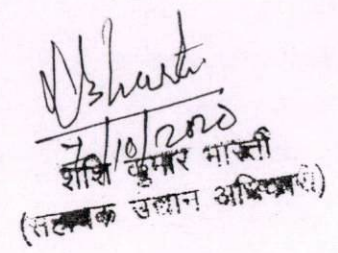 7/10/2020
शशि कुमार भारती
(सहायक उद्यान अधिकारी)